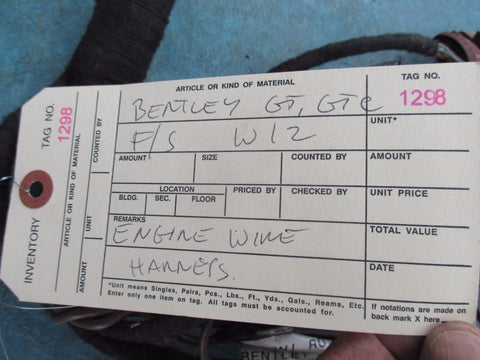 ARTICLE OR KIND OF MATERIAL
TAG NO.
BENTLEY GT, GTC
1298
F/S W12
UNIT*
AMOUNT SIZE COUNTED BY AMOUNT
LOCATION PRICED BY CHECKED BY UNIT PRICE
BLDG. SEC. FLOOR
REMARKS
TOTAL VALUE
ENGINE WIRE
HARNESS.
DATE
*Unit means Singles, Pairs, Pcs., Lbs., Ft., Yds., Gals., Reams, Etc.
Enter only one item on tag. All tags must be accounted for.
If notations are made on
back mark X here
INVENTORY
TAG NO. 1298
ARTICLE OR KIND OF MATERIAL
AMOUNT UNIT COUNTED BY
BENTLEY